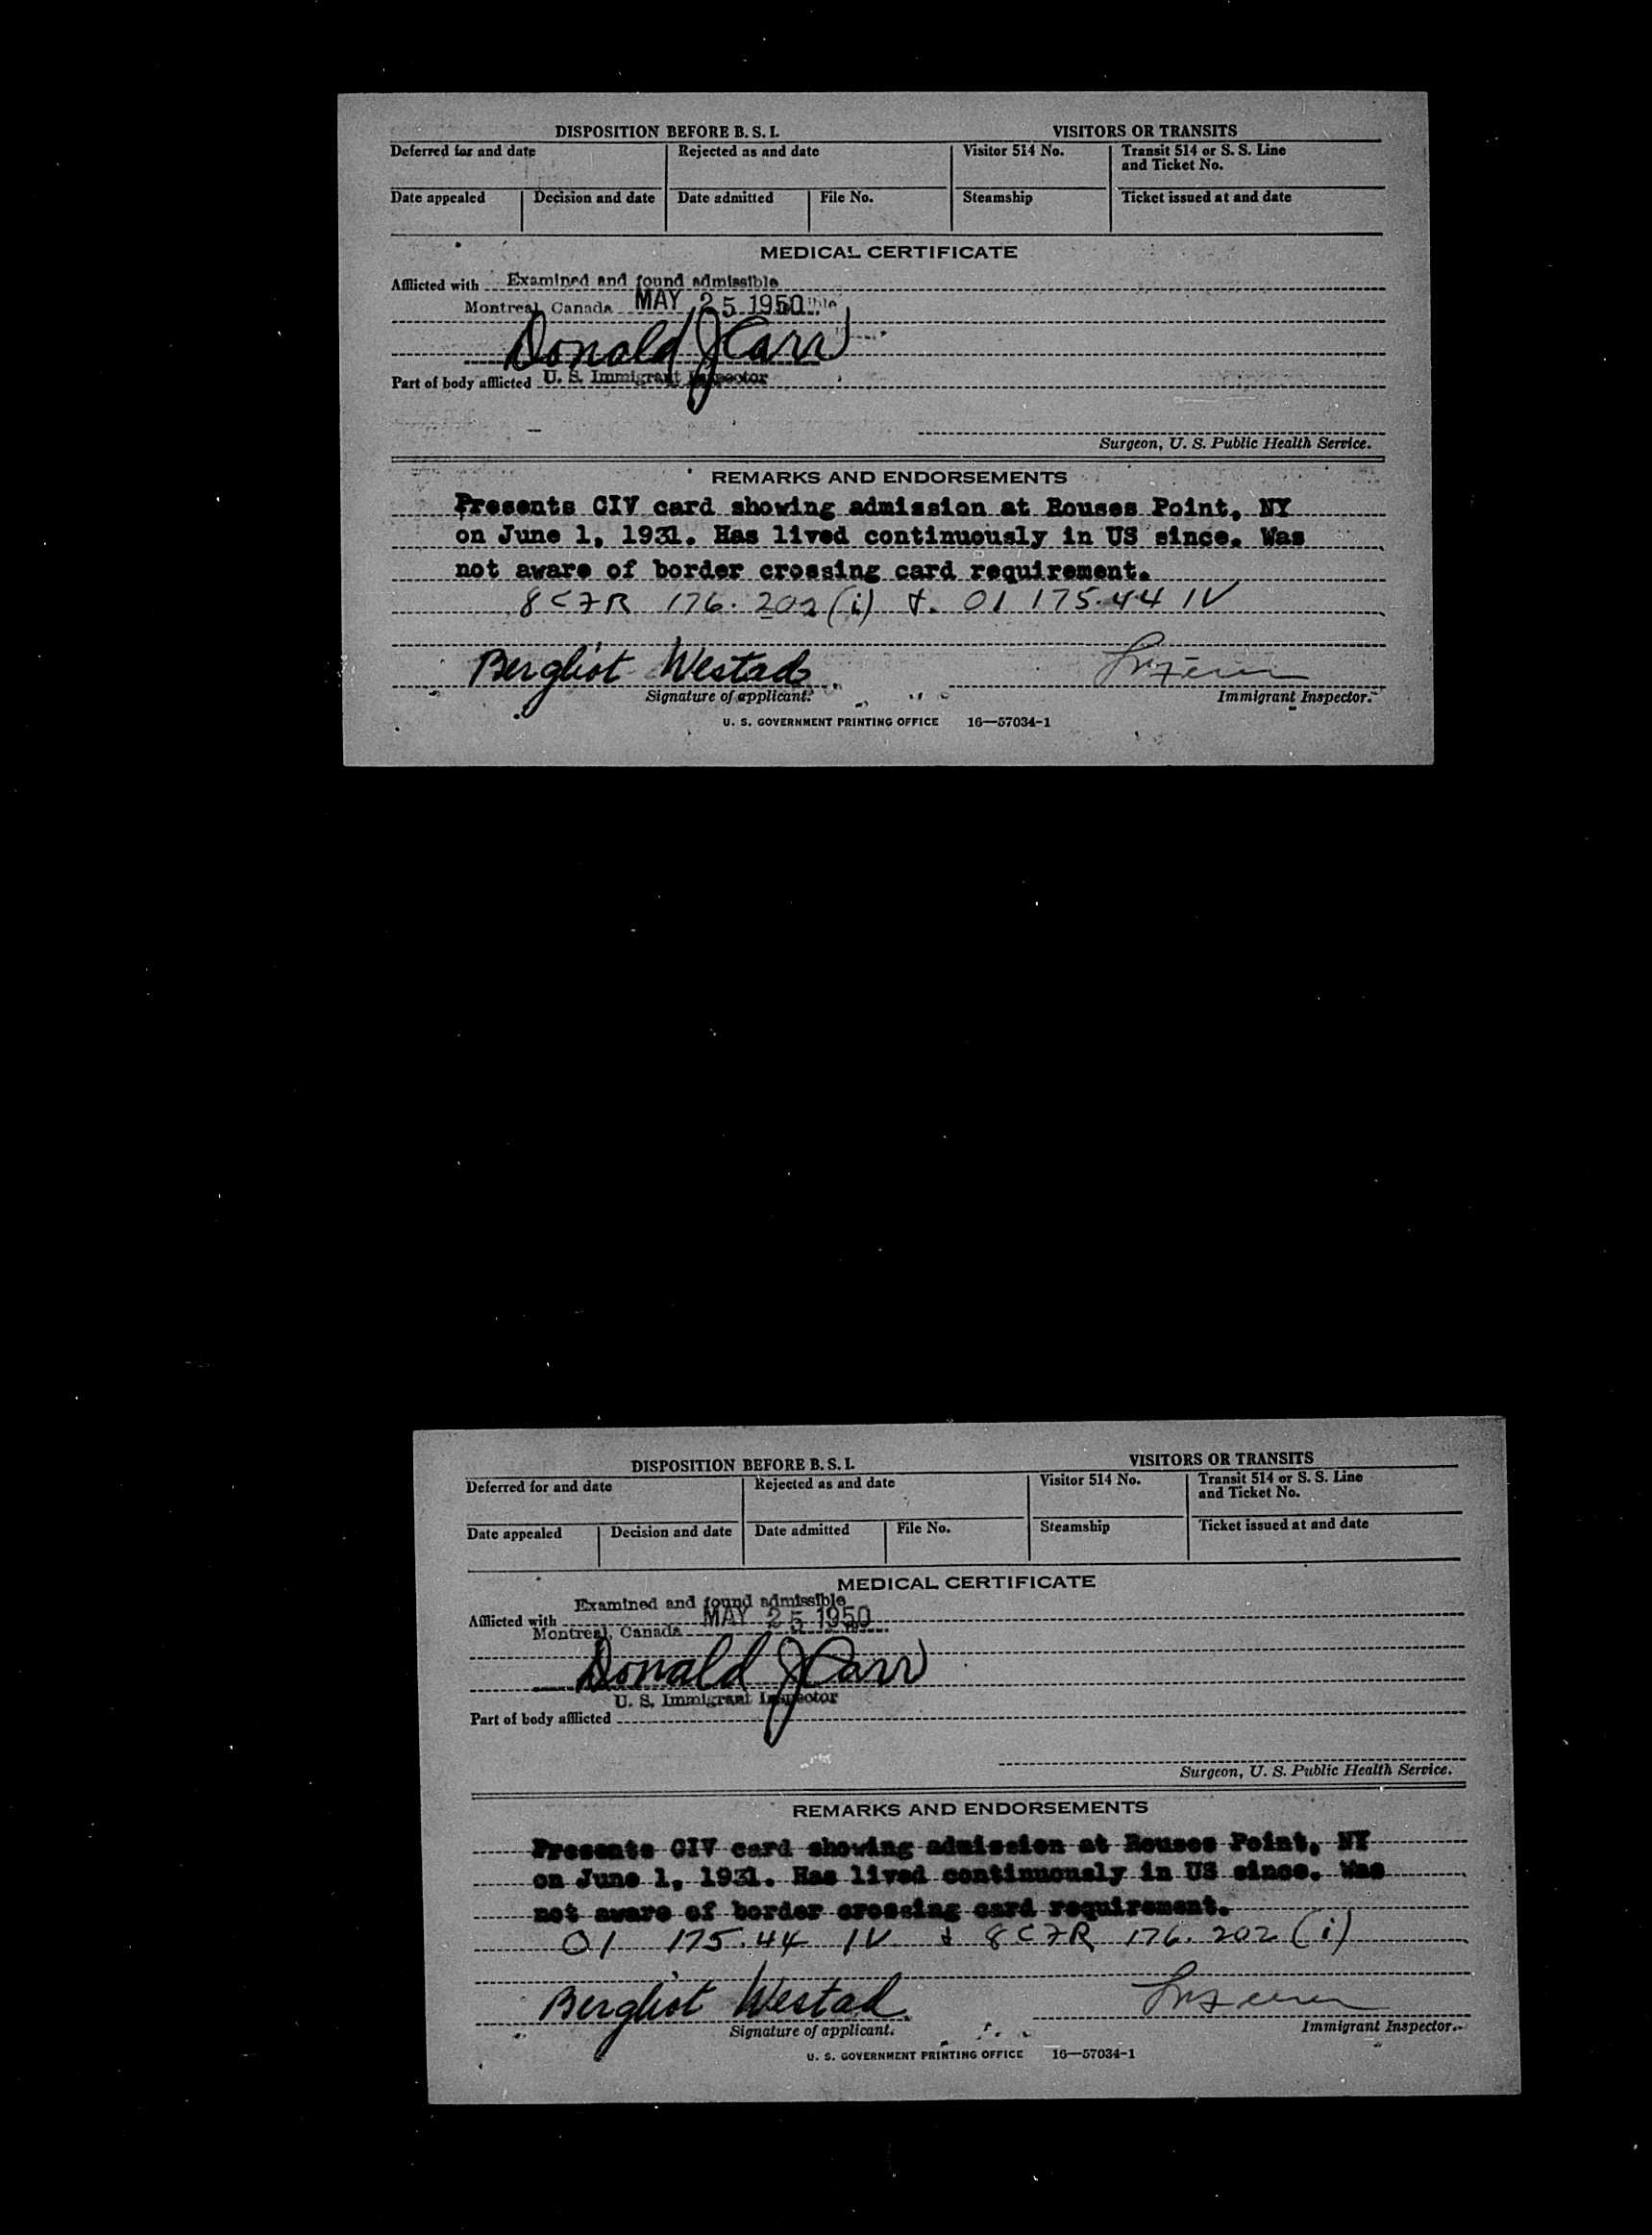 DISPOSITION BEFORE B. S. I. VISITORS OR TRANSITS
Deferred for and date Rejected as and date Visitor 514 No. Transit 514 or S. S. Line and Ticket No.
Date appealed Decision and date Date admitted File No. Steamship Ticket issued at and date
MEDICAL CERTIFICATE
Afflicted with Examined and found admissible
Montreal, Canada MAY 25 1950
Donald J Carr
Part of body afflicted U. S. Immigrant Inspector
Surgeon, U. S. Public Health Service.
REMARKS AND ENDORSEMENTS
Presents CIV card showing admission at Rouses Point, NY
on June 1, 1931. Has lived continuously in US since. Was
not aware of border crossing card requirement.
8 CFR 176.202(i) & OI 175.44 IV
Bergliot Westad
Signature of applicant. Immigrant Inspector.
U. S. GOVERNMENT PRINTING OFFICE 16—57034-1
DISPOSITION BEFORE B. S. I. VISITORS OR TRANSITS
Deferred for and date Rejected as and date Visitor 514 No. Transit 514 or S. S. Line and Ticket No.
Date appealed Decision and date Date admitted File No. Steamship Ticket issued at and date
MEDICAL CERTIFICATE
Examined and found admissible
Afflicted with MAY 25 1950
Montreal, Canada
Donald J Carr
U. S. Immigrant Inspector
Part of body afflicted
Surgeon, U. S. Public Health Service.
REMARKS AND ENDORSEMENTS
Presents CIV card showing admission at Rouses Point, NY
on June 1, 1931. Has lived continuously in US since. Was
not aware of border crossing card requirement.
OI 175.44 IV & 8 CFR 176.202(i)
Bergliot Westad
Signature of applicant. Immigrant Inspector.
U. S. GOVERNMENT PRINTING OFFICE 16—57034-1